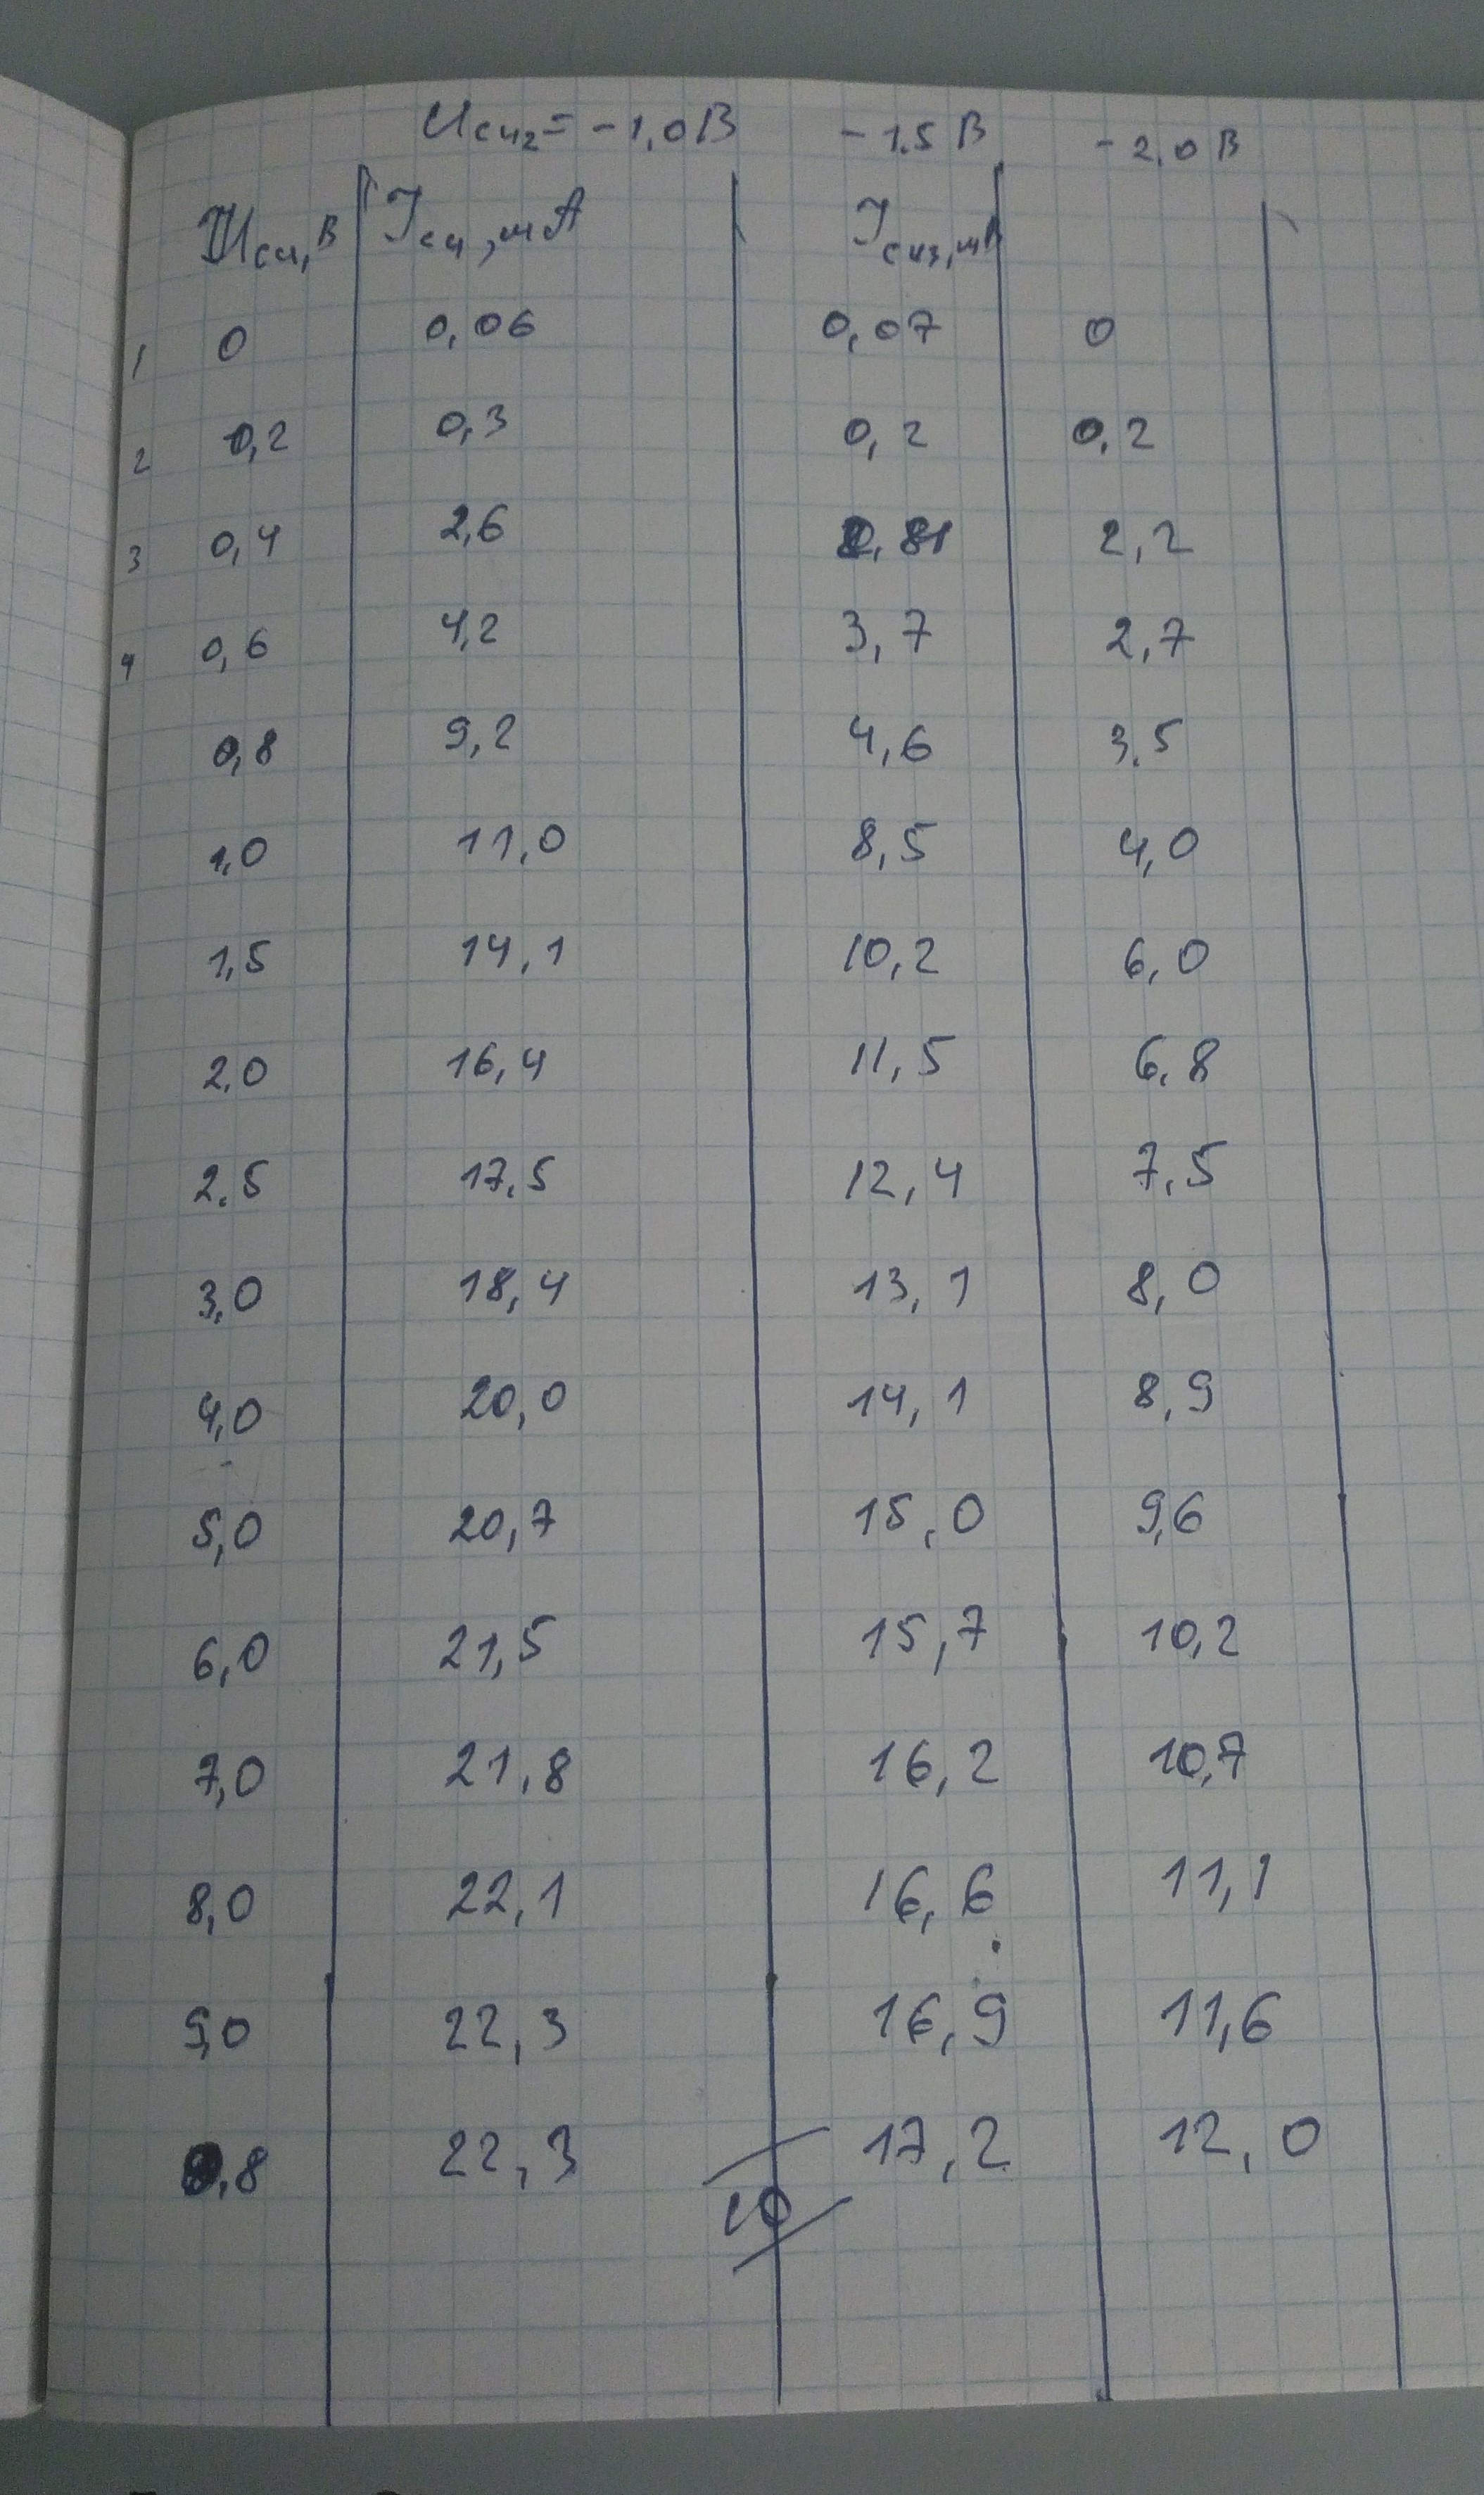 Uси₂ = -1,0 В -1.5 В -2,0 В
Uси, В Iси, мА Iси3, мА
1 0 0,06 0,07 0
2 0,2 0,3 0,2 0,2
3 0,4 2,6 2,2
4 0,6 4,2 3,7 2,7
0,8 9,2 4,6 3.5
1,0 11,0 8,5 4,0
1,5 14,1 10,2 6,0
2,0 16,4 11,5 6,8
2.5 17,5 12,4 7,5
3,0 18,4 13,1 8,0
4,0 20,0 14,1 8,9
5,0 20,7 15,0 9,6
6,0 21,5 15,7 10,2
7,0 21,8 16,2 10,7
8,0 22,1 16,6 11,1
9,0 22,3 16,9 11,6
9,8 22,3 17,2 12,0
10